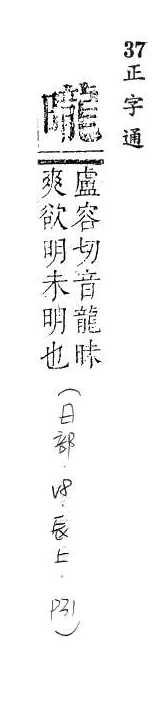 37 正字通
曨
盧容切音龍昧
爽欲明未明也
(日部.V8.辰上.P31)